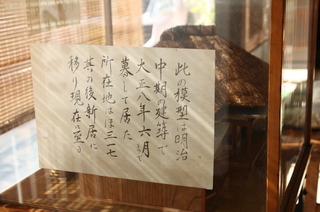 此の模型は明治
中期の建築で
大正八年六月まで
暮して居た
所在地はほ三一七
其の後新居に
移り現在に至る